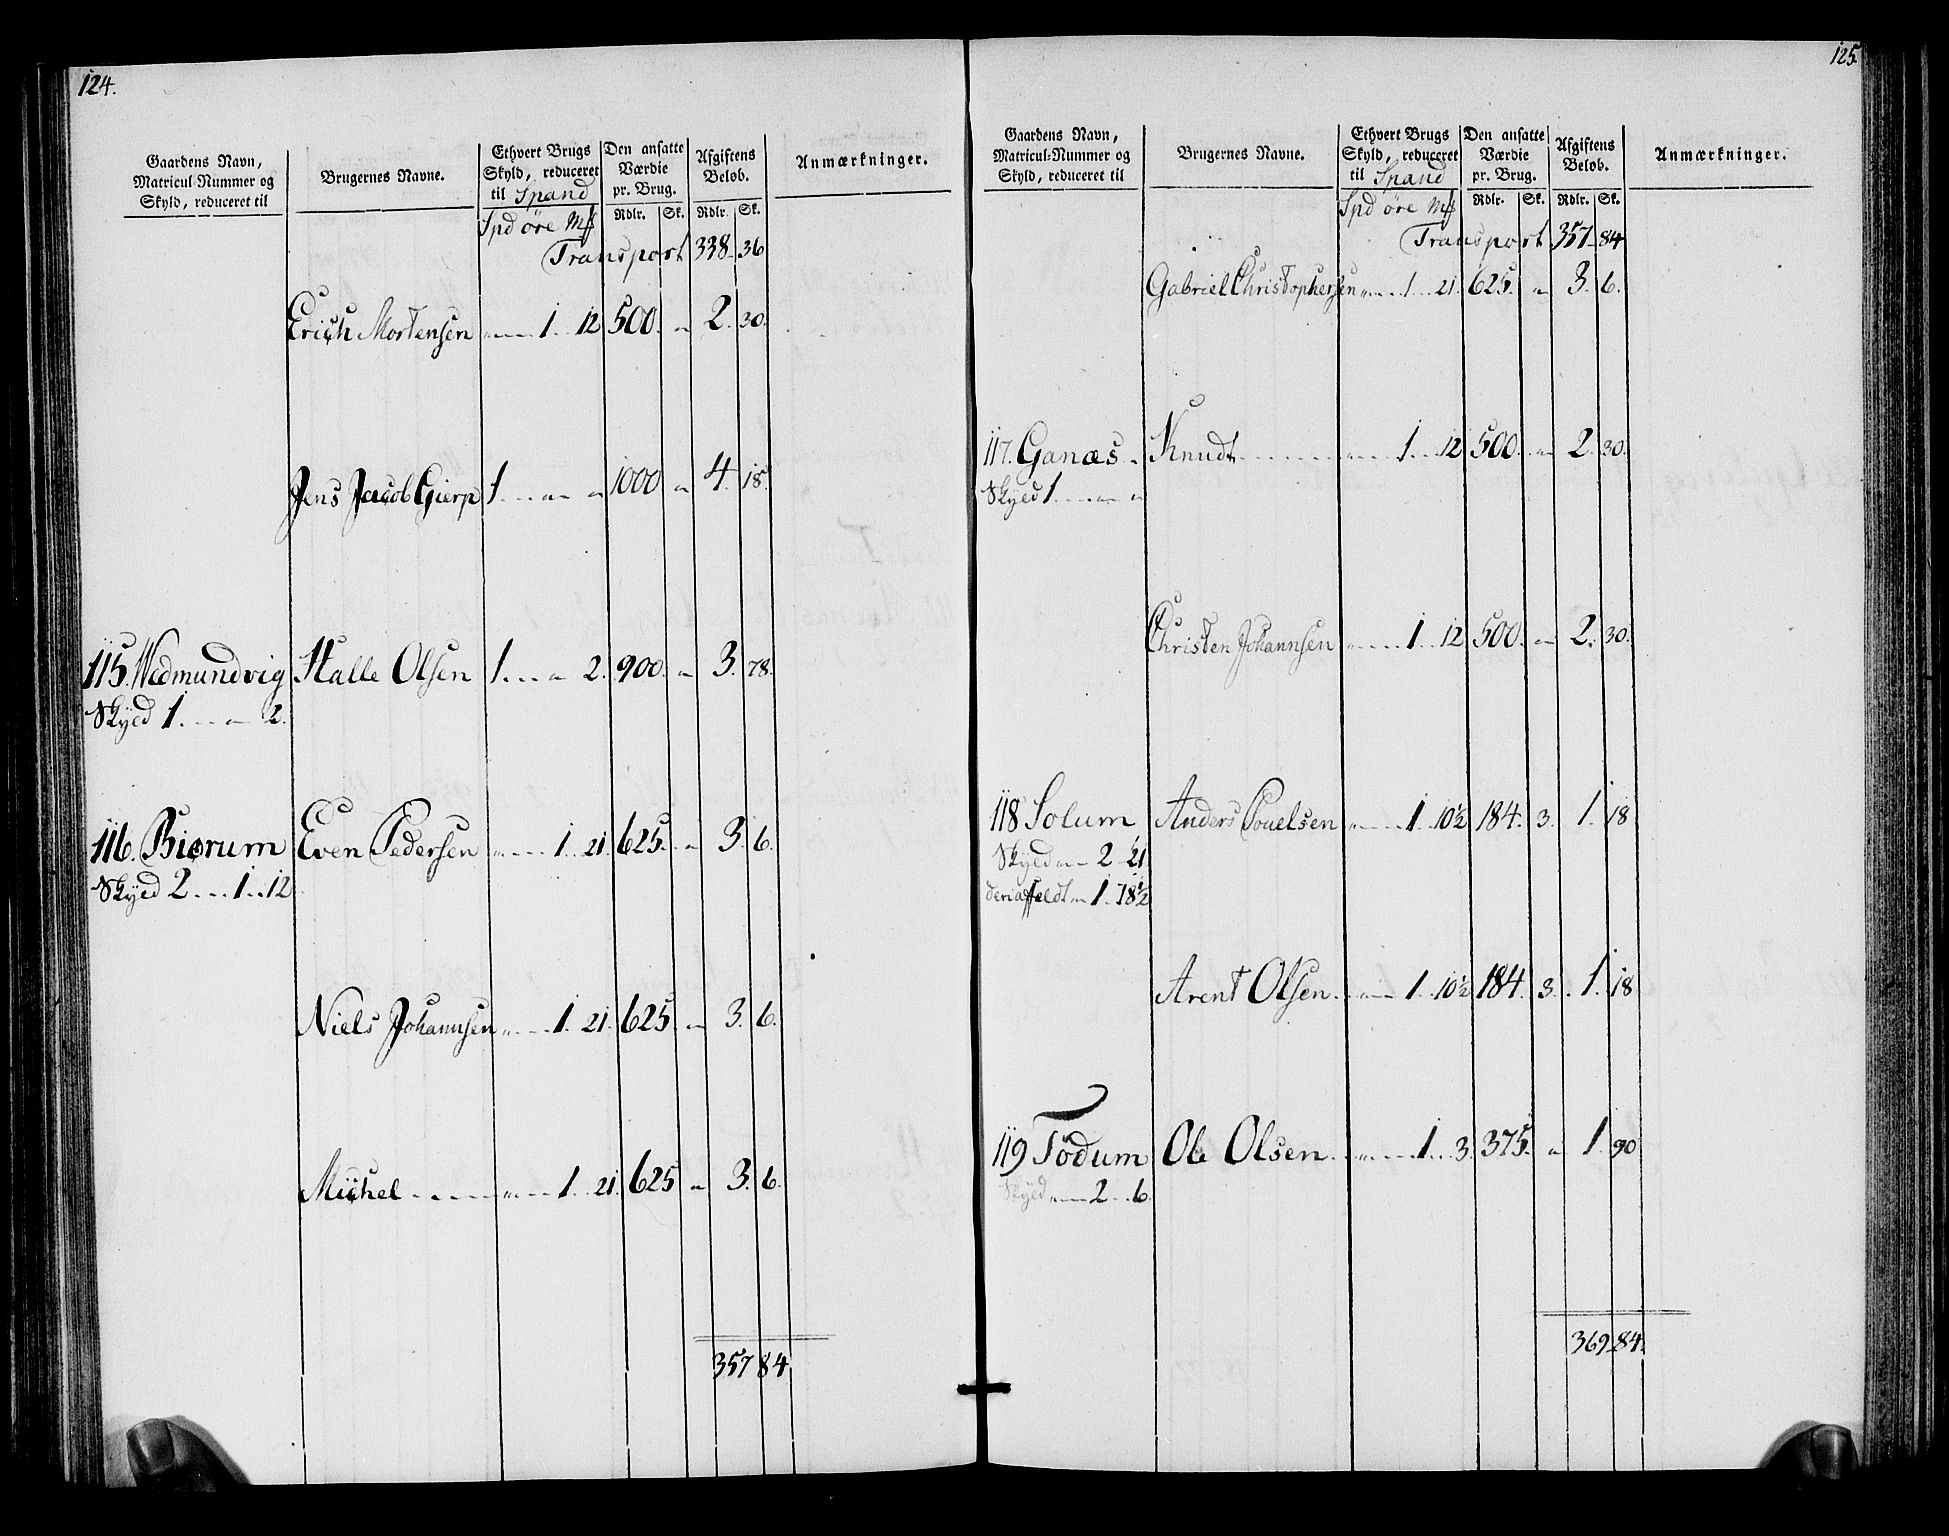 124.
Gaardens Navn, Matricul-Nummer og Skyld, reduceret til
Brugernes Navne.
Ethvert Brugs Skyld, reduceret til Spand
Den ansatte Værdie pr. Brug.
Afgiftens Beløb.
Anmærkninger.
Rdlr. Sk. Rdlr. Sk.
Spd öre Mk
Transport 338. 36
Erich Mortensen „ 1 12 500. „ 2. 30.
Jens Jacob Gierp 1 „ „ 1000 „ 4. 18.
115. Wedmundvig Halle Olsen 1 „ 2. 900. „ 3. 78.
Skyld 1 „ 2.
116. Biørum Even Pedersen „ 1. 21. 625. „ 3. 6.
Skyld 2. 1. 12.
Niels Johannsen „ 1. 21. 625. „ 3. 6.
Michel „ 1. 21. 625 „ 3. 6.
357 84.
125.
Gaardens Navn, Matricul-Nummer og Skyld, reduceret til
Brugernes Navne.
Ethvert Brugs Skyld, reduceret til Spand
Den ansatte Værdie pr. Brug.
Afgiftens Beløb.
Anmærkninger.
Rdlr. Sk. Rdlr. Sk.
Spd öre Mk
Transport 357. 84
Gabriel Christophersen „ 1. 21. 625. „ 3. 6.
117. Ganæs Knudt „ 1. 12 500. „ 2. 30.
Skyld 1. „ „
Christen Johannsen „ 1. 12 500. „ 2. 30.
118 Solum Anders Pouelsen „ 1. 10½ 184. 3. 1. 18
Skyld „ 2 21
„ 1. 18½
Arent Olsen „ 1. 10½ 184. 3. 1. 18
119 Tødum Ole Olsen „ 1. 3. 375. „ 1. 90
Skyld „ 2. 6.
369. 84.